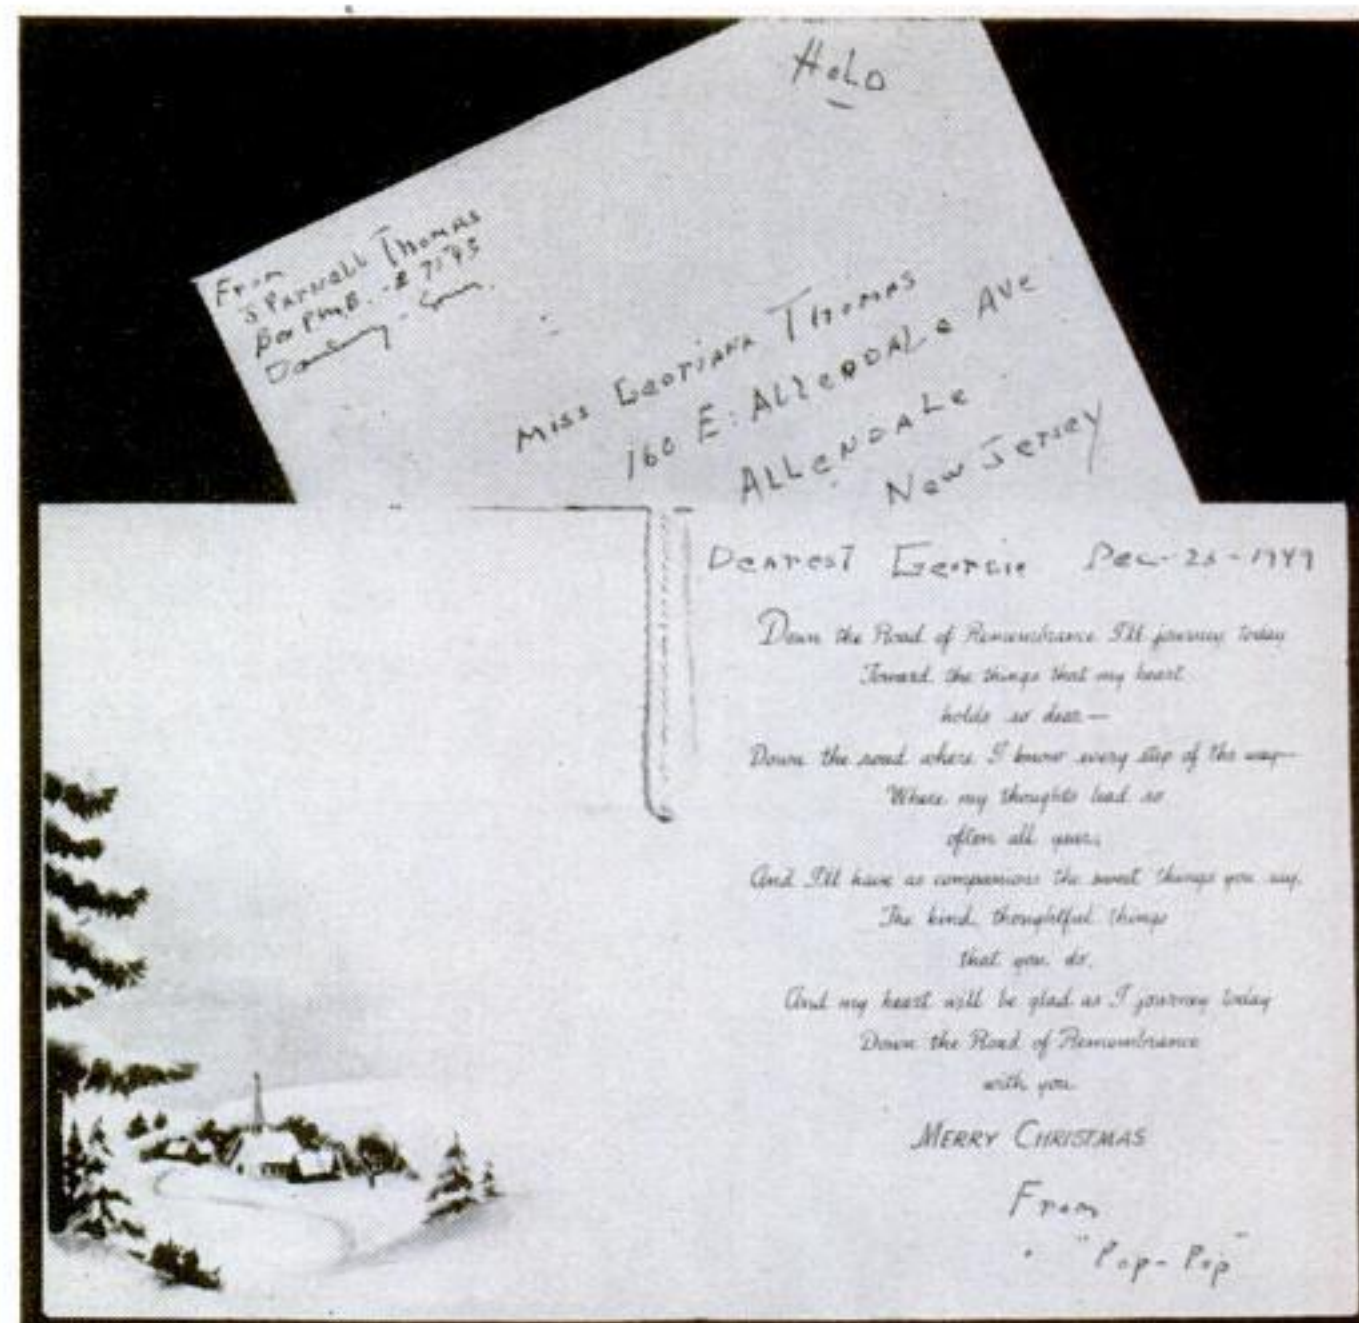 HOLD
From
J Parnell Thomas
Box PMB - # 7195
Danbury - Conn.
Miss Georiana Thomas
160 E. ALLENDALE AVE
ALLENDALE
New Jersey
Dearest Georgie Dec - 25 - 1949
Down the Road of Remembrance I'll journey today
Toward the things that my heart
holds so dear—
Down the road where I know every step of the way—
Where my thoughts lead so
often all year,
And I'll have as companions the sweet things you say,
The kind, thoughtful things
that you do,
And my heart will be glad as I journey today
Down the Road of Remembrance
with you
MERRY CHRISTMAS
From
"Pop-Pop"